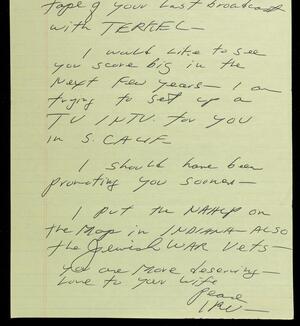 tape of your last broadcast
with TERKEL—
I would like to see
you score big in the
Next few years— I am
trying to set up a
TV INTV. for you
in S. CALIF—
I should have been
promoting you sooner—
I put the NAACP on
the Map in INDIANA—ALSO
the Jewish WAR Vets—
You are More deserving—
Love to your wife
Peace
IRV—